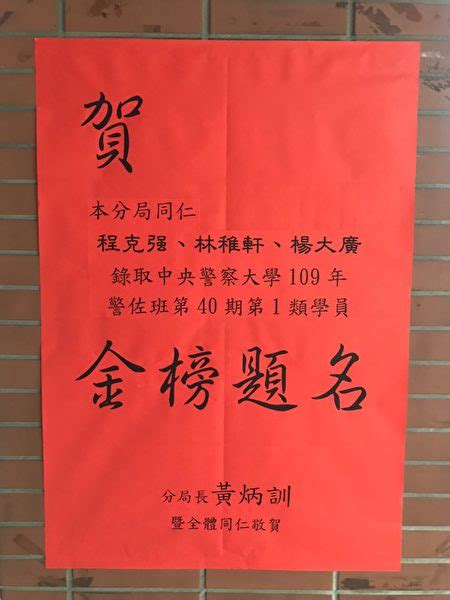 賀
本分局同仁
程克强、林稚軒、楊大廣
錄取中央警察大學109年
警佐班第40期第1類學員
金榜題名
分局長黃炳訓
暨全體同仁敬賀